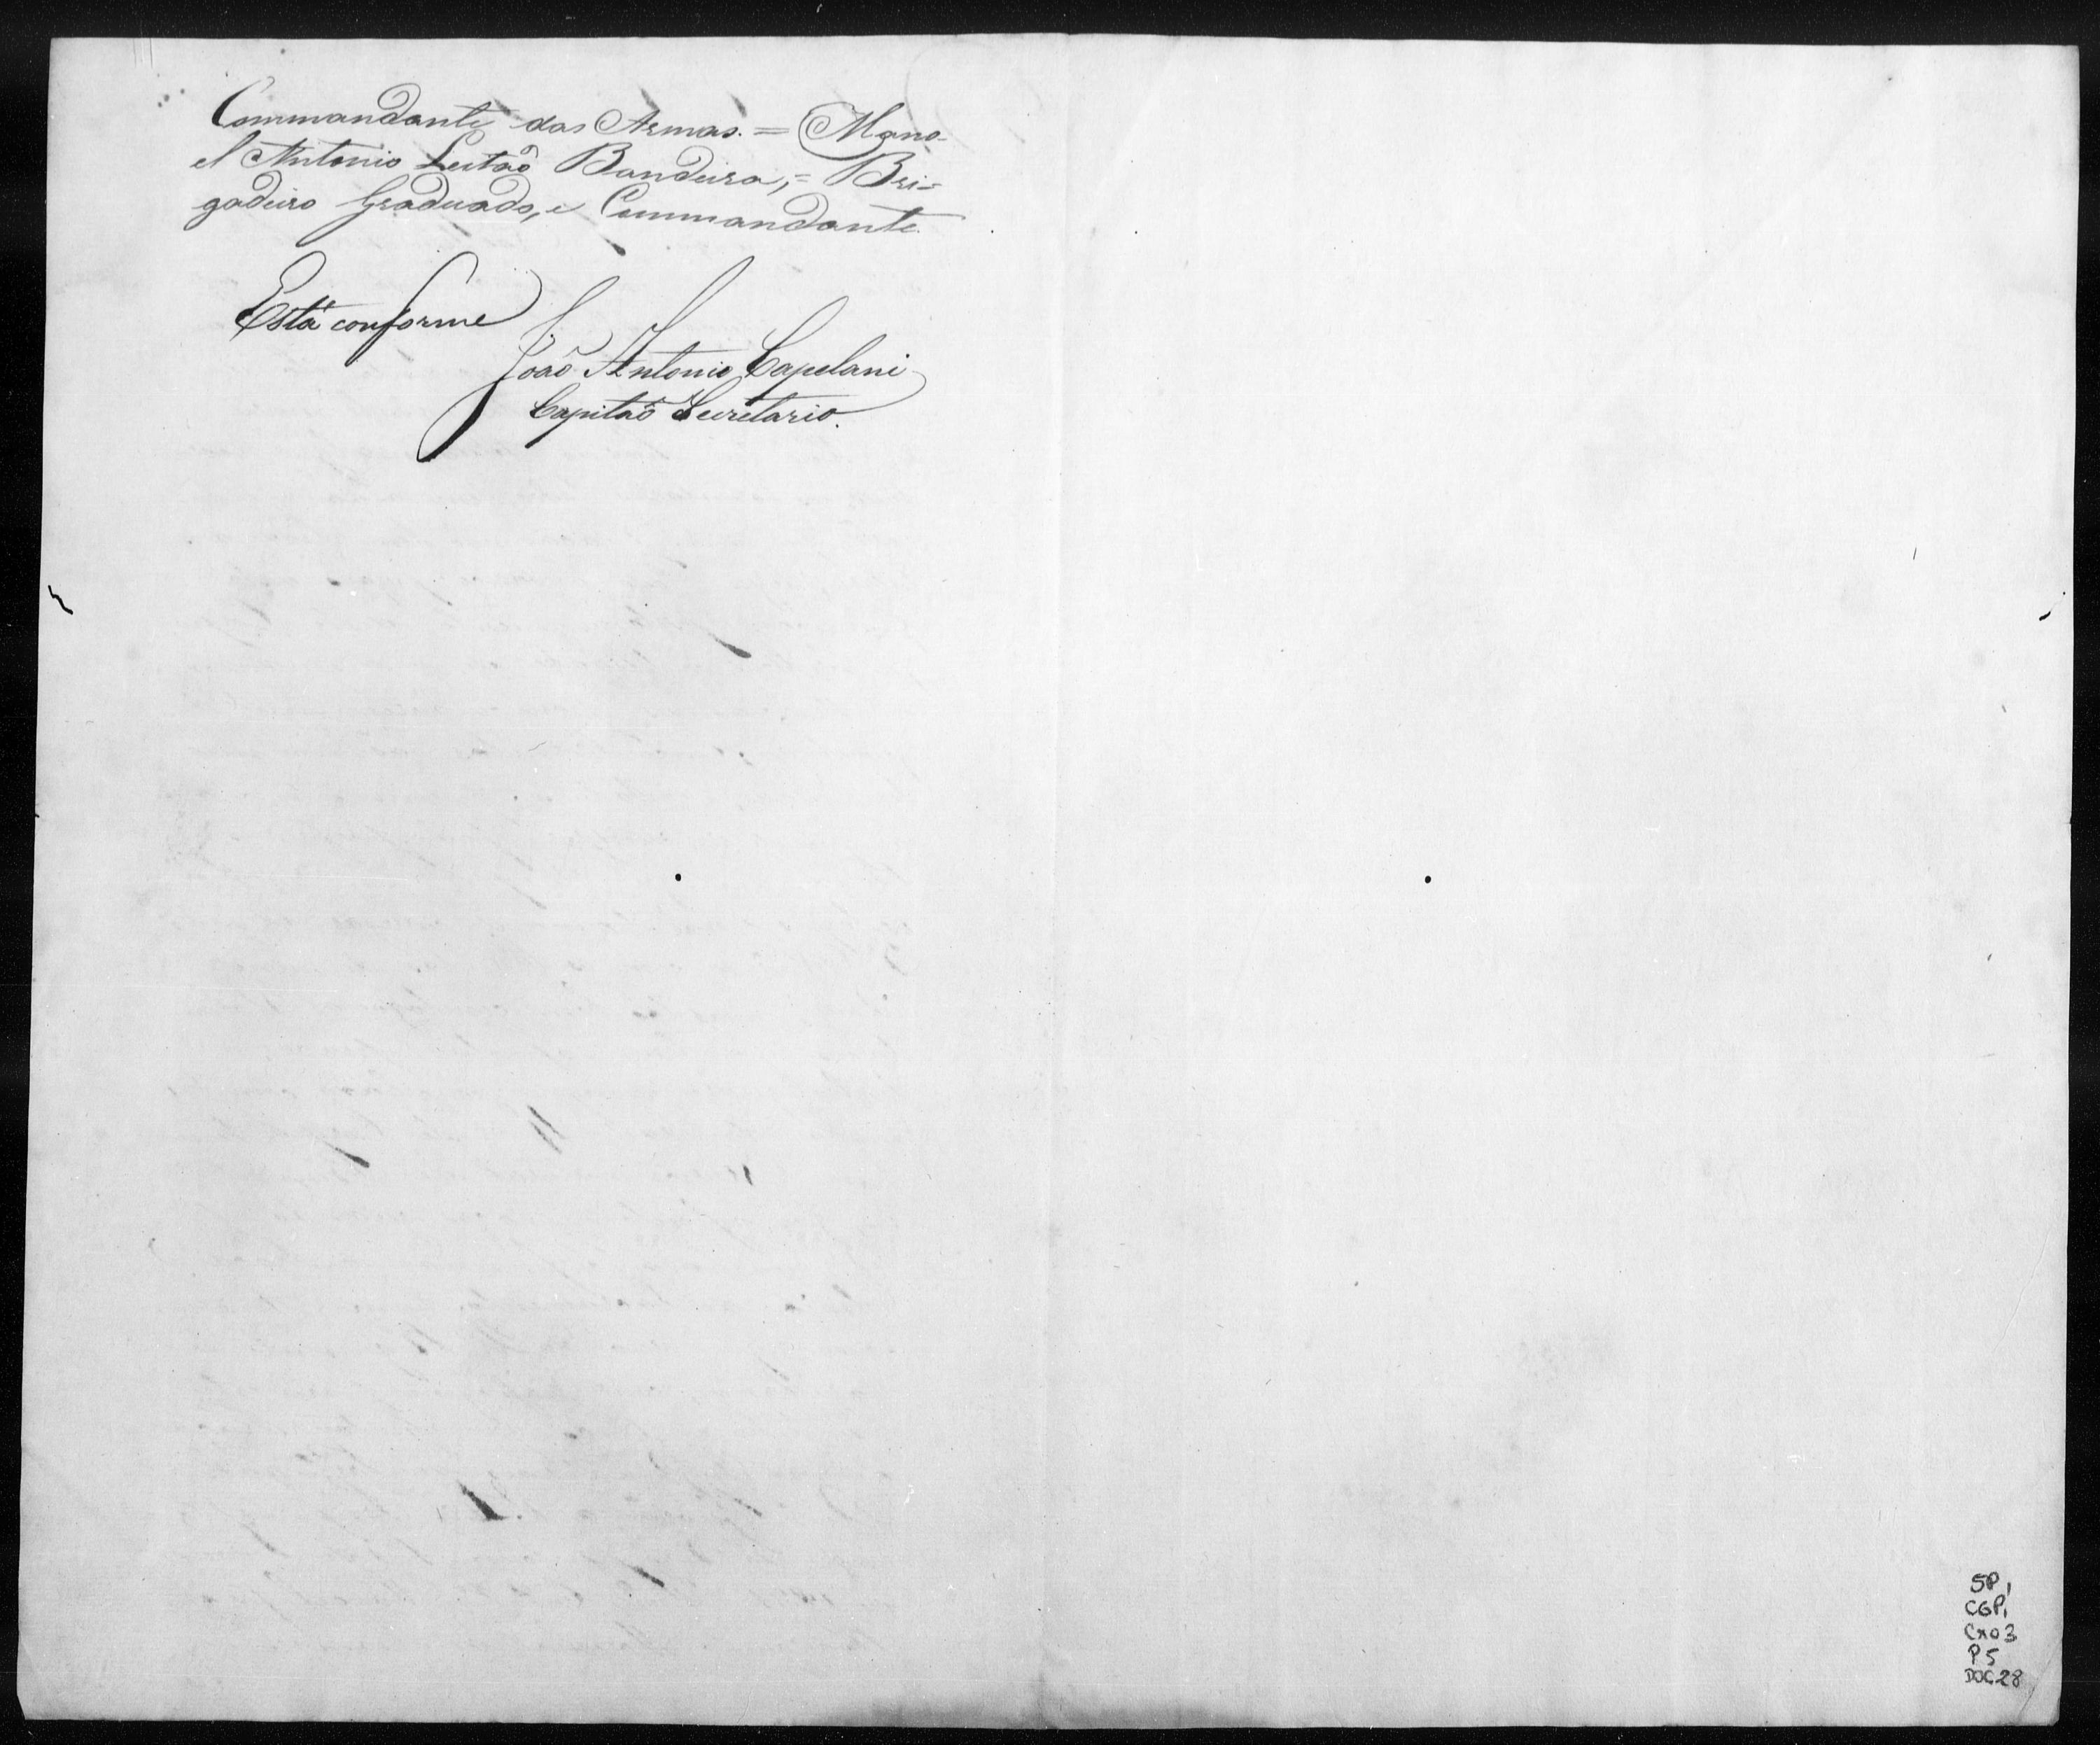 Commandante das Armas. = Mano-
el Antonio Leitaõ Bandeira, = Bri=
gadeiro Graduado, e Commandante.
Está conforme
Joaõ Antonio Capelani
Capitaõ Secretario.
SP1
CGP1
Cx03
P5
DOC28